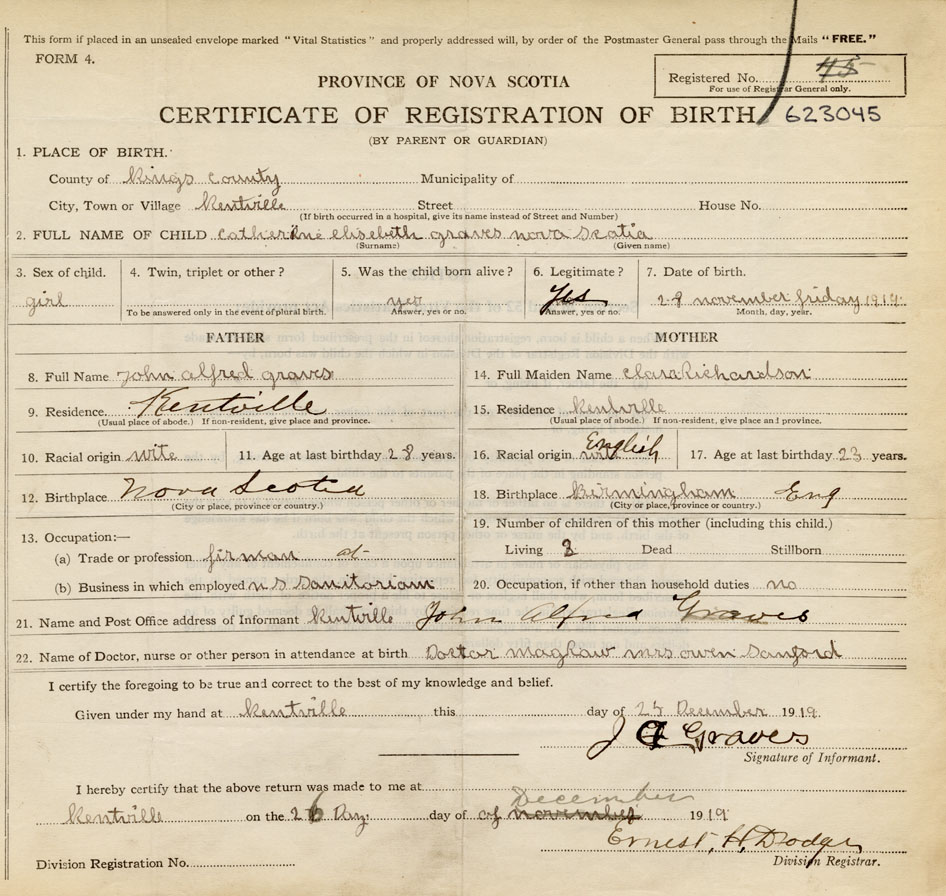 This form if placed in an unsealed envelope marked "Vital Statistics" and properly addressed will, by order of the Postmaster General pass through the Mails "FREE."
FORM 4.
Registered No. 45
For use of Registrar General only.
PROVINCE OF NOVA SCOTIA
CERTIFICATE OF REGISTRATION OF BIRTH 623045
(BY PARENT OR GUARDIAN)
1. PLACE OF BIRTH.
County of Kings county Municipality of
City, Town or Village Kentville Street House No.
(If birth occurred in a hospital, give its name instead of Street and Number)
2. FULL NAME OF CHILD catherine elisebeth graves nova scatia
(Surname) (Given name)
3. Sex of child. 4. Twin, triplet or other? 5. Was the child born alive? 6. Legitimate? 7. Date of birth.
girl yes Yes 28 november friday 1919.
To be answered only in the event of plural birth. Answer, yes or no. Answer, yes or no. Month, day, year.
FATHER MOTHER
8. Full Name John alfred graves 14. Full Maiden Name clara Richardson
9. Residence Kentville 15. Residence kentville
(Usual place of abode.) If non-resident, give place and province. (Usual place of abode.) If non-resident, give place and province.
10. Racial origin wite 11. Age at last birthday 28 years. 16. Racial origin English 17. Age at last birthday 23 years.
12. Birthplace Nova Scotia 18. Birthplace Birmingham Eng
(City or place, province or country.) (City or place, province or country.)
13. Occupation:— 19. Number of children of this mother (including this child.)
(a) Trade or profession firman at Living Dead Stillborn
(b) Business in which employed n s sanitoriam 20. Occupation, if other than household duties no
21. Name and Post Office address of Informant kentville John Alfred Graves
22. Name of Doctor, nurse or other person in attendance at birth Doctar maglaw mrs owen sanford
I certify the foregoing to be true and correct to the best of my knowledge and belief.
Given under my hand at kentville this day of December 1919.
J A Graves
Signature of Informant.
I hereby certify that the above return was made to me at
December
kentville on the 26 Day day of of november 1919
Ernest, H, Dodge
Division Registrar.
Division Registration No.